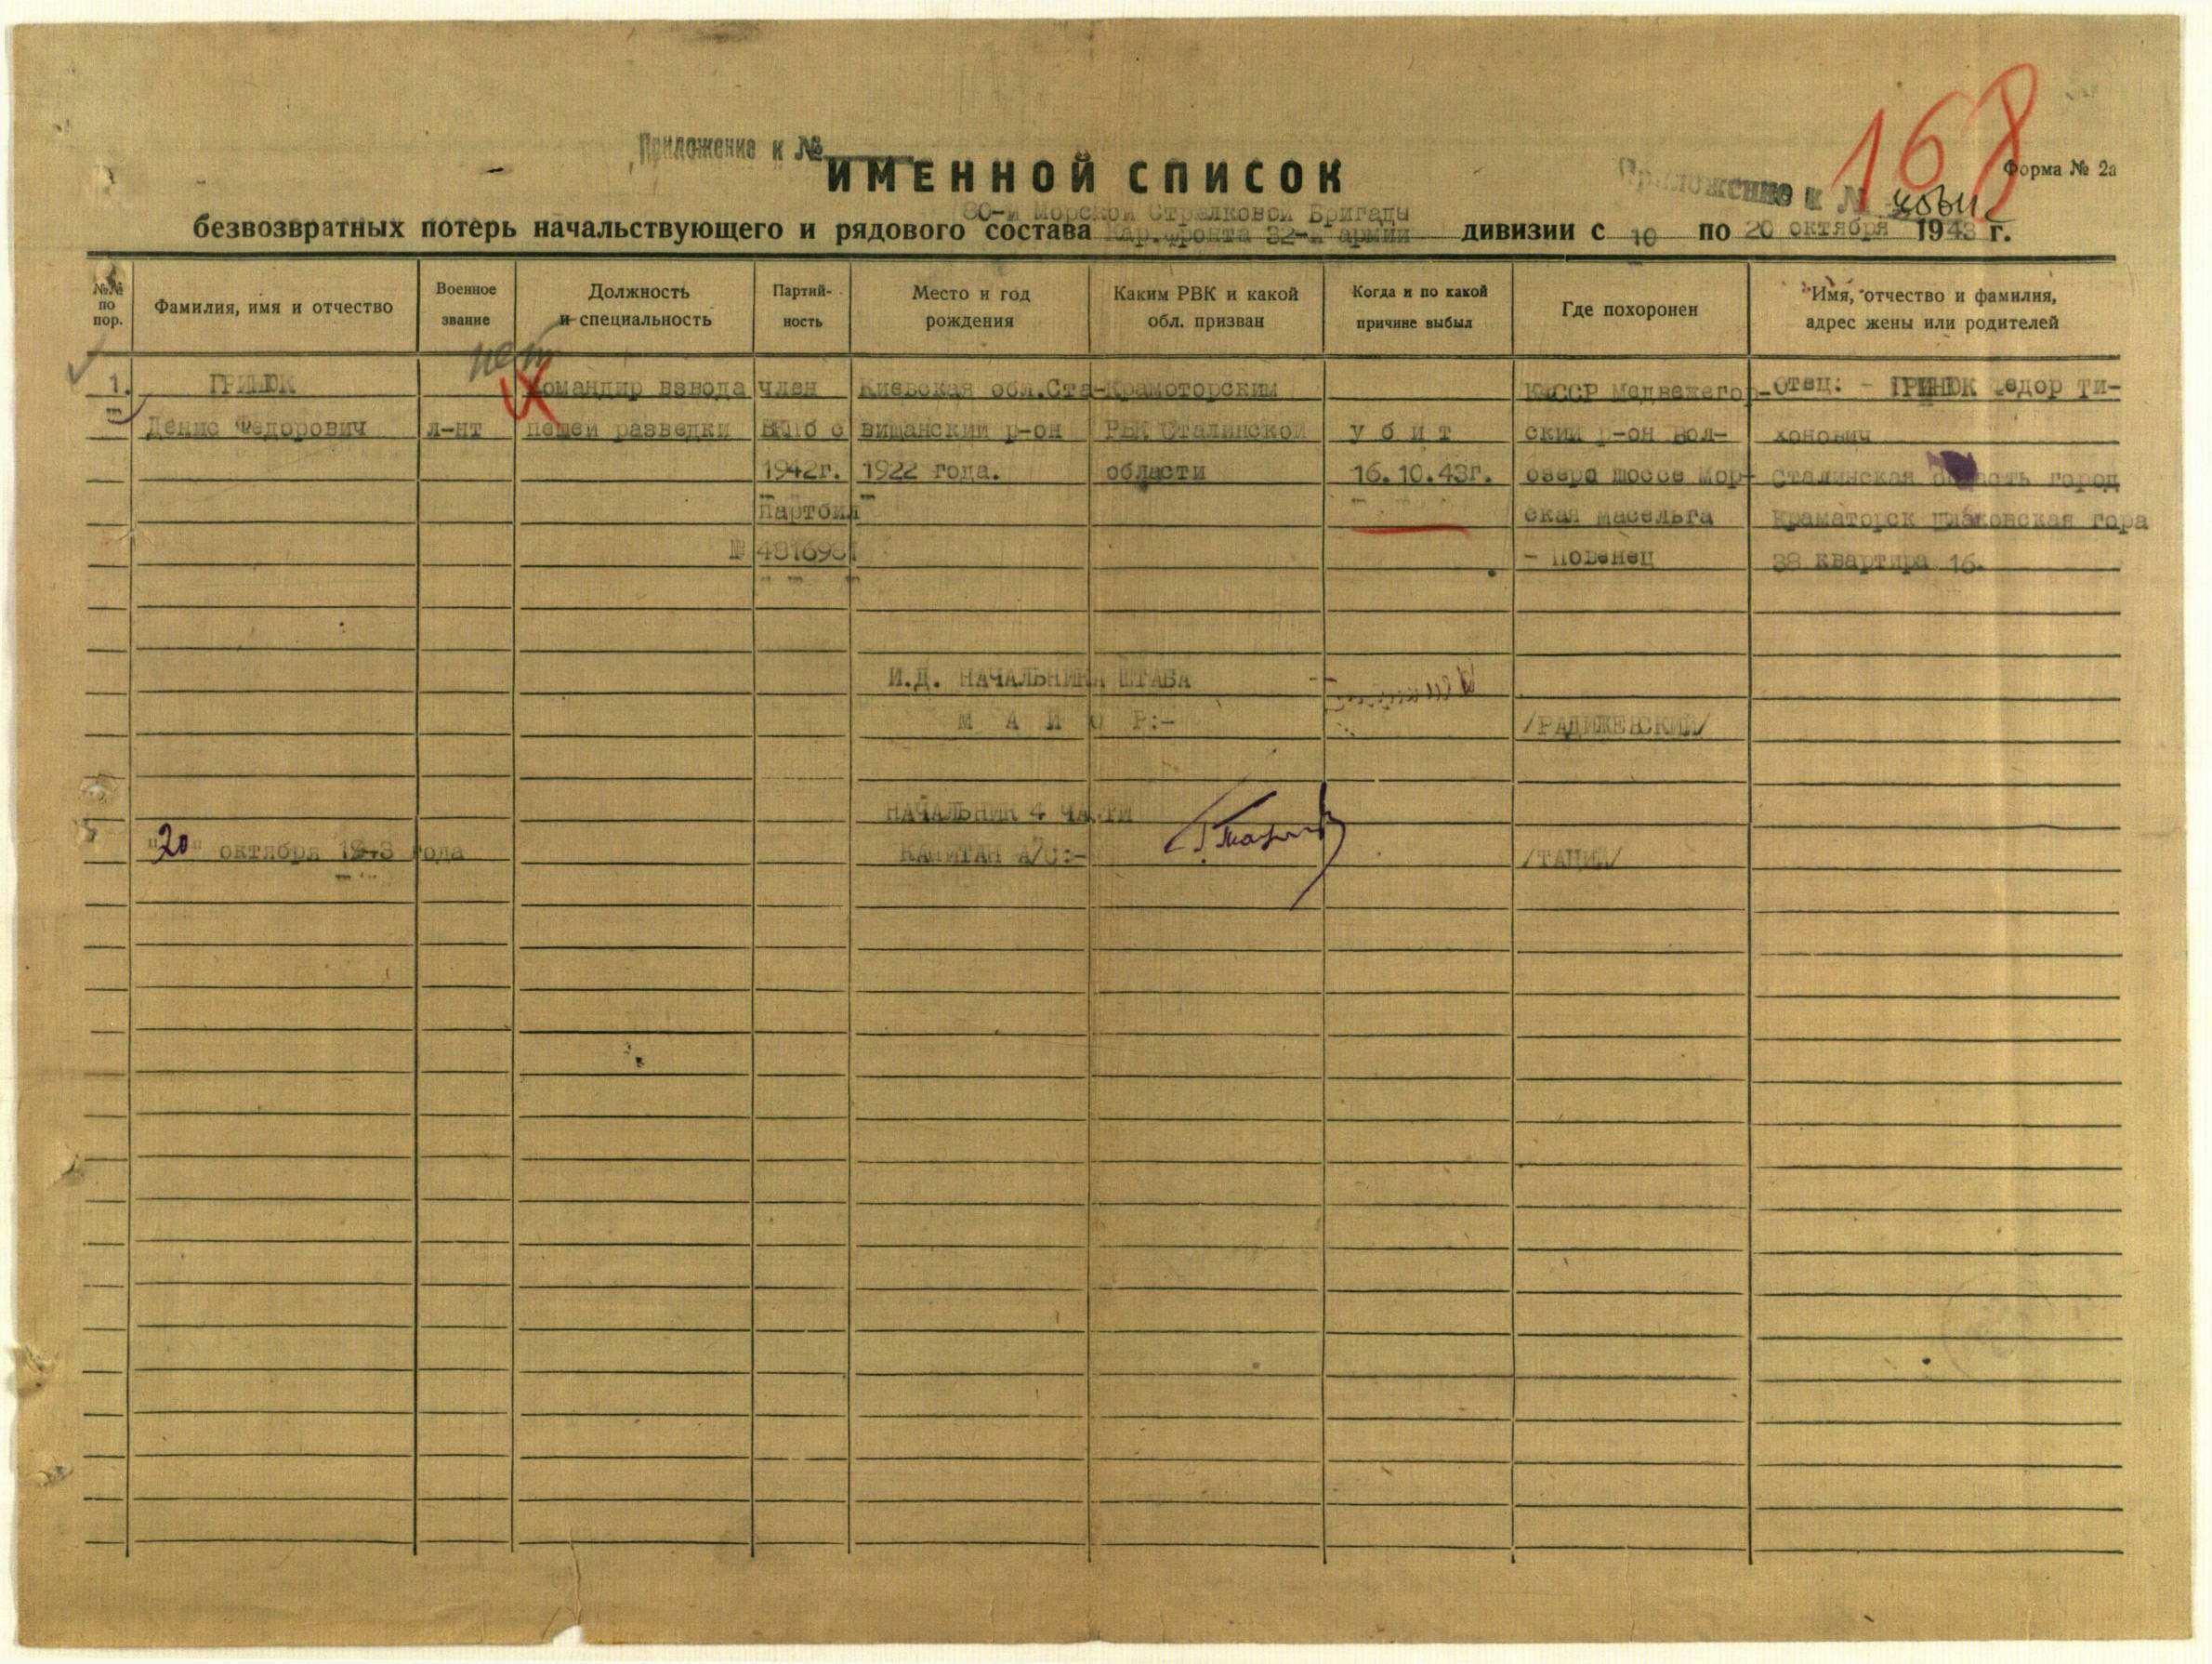 Приложение к №
ИМЕННОЙ СПИСОК
Приложение к №
168
Форма № 2а
80-й Морской Стрелковой Бригады
безвозвратных потерь начальствующего и рядового состава Кар.фронта 32-й армии дивизии с 10 по 20 октября 1943 г.
№№ по пор.
Фамилия, имя и отчество
Военное звание
Должность и специальность
Партий- ность
Место и год рождения
Каким РВК и какой обл. призван
Когда и по какой причине выбыл
Где похоронен
Имя, отчество и фамилия, адрес жены или родителей
нет
1. ГРИНЮК Командир взвода член Киевская обл.Ста- Краматорским КФССР Медвежегор- Отец: - ГРИНЮК Федор Ти-
Денис Федорович л-нт пешей разведки ВКПб с вищанский р-он РВК Сталинской у б и т ский р-он Вол- хонович
1942г. 1922 года. области 16.10.43г. озера шоссе Мор- Сталинская область город
Партбил ская Масельга Краматорск
№ 481698 - Повенец 38 квартира 16.
И.Д. НАЧАЛЬНИКА ШТАБА
М А Й О Р:- /РАДИЖЕВСКИЙ/
НАЧАЛЬНИК 4 ЧАСТИ
"20" октября 1943 года КАПИТАН А/С:-